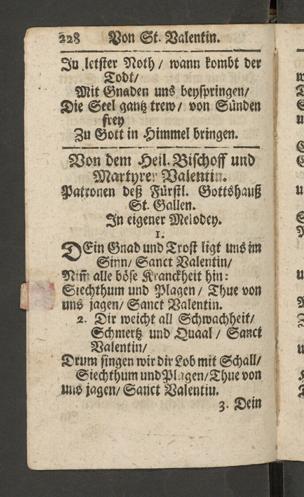 228 Von St. Valentin.
In letster Noth / wann kombt der
Todt /
Mit Gnaden uns beyspringen /
Die Seel gantz trew / von Sünden
frey
Zu Gott in Himmel bringen.
Von dem Heil. Bischoff und
Martyrer Valentin.
Patronen deß Fürstl. Gottshauß
St. Gallen.
In eigener Melodey.
1.
DEin Gnad und Trost ligt uns im
Sinn / Sanct Valentin /
Nim̃ alle böse Kranckheit hin:
Siechthum und Plagen / Thue von
uns jagen / Sanct Valentin.
2. Dir weicht all Schwachheit /
Schmertz und Quaal / Sanct
Valentin /
Drum singen wir dir Lob mit Schall /
Siechthum und Plagen / Thue von
uns jagen / Sanct Valentin.
3. Dein